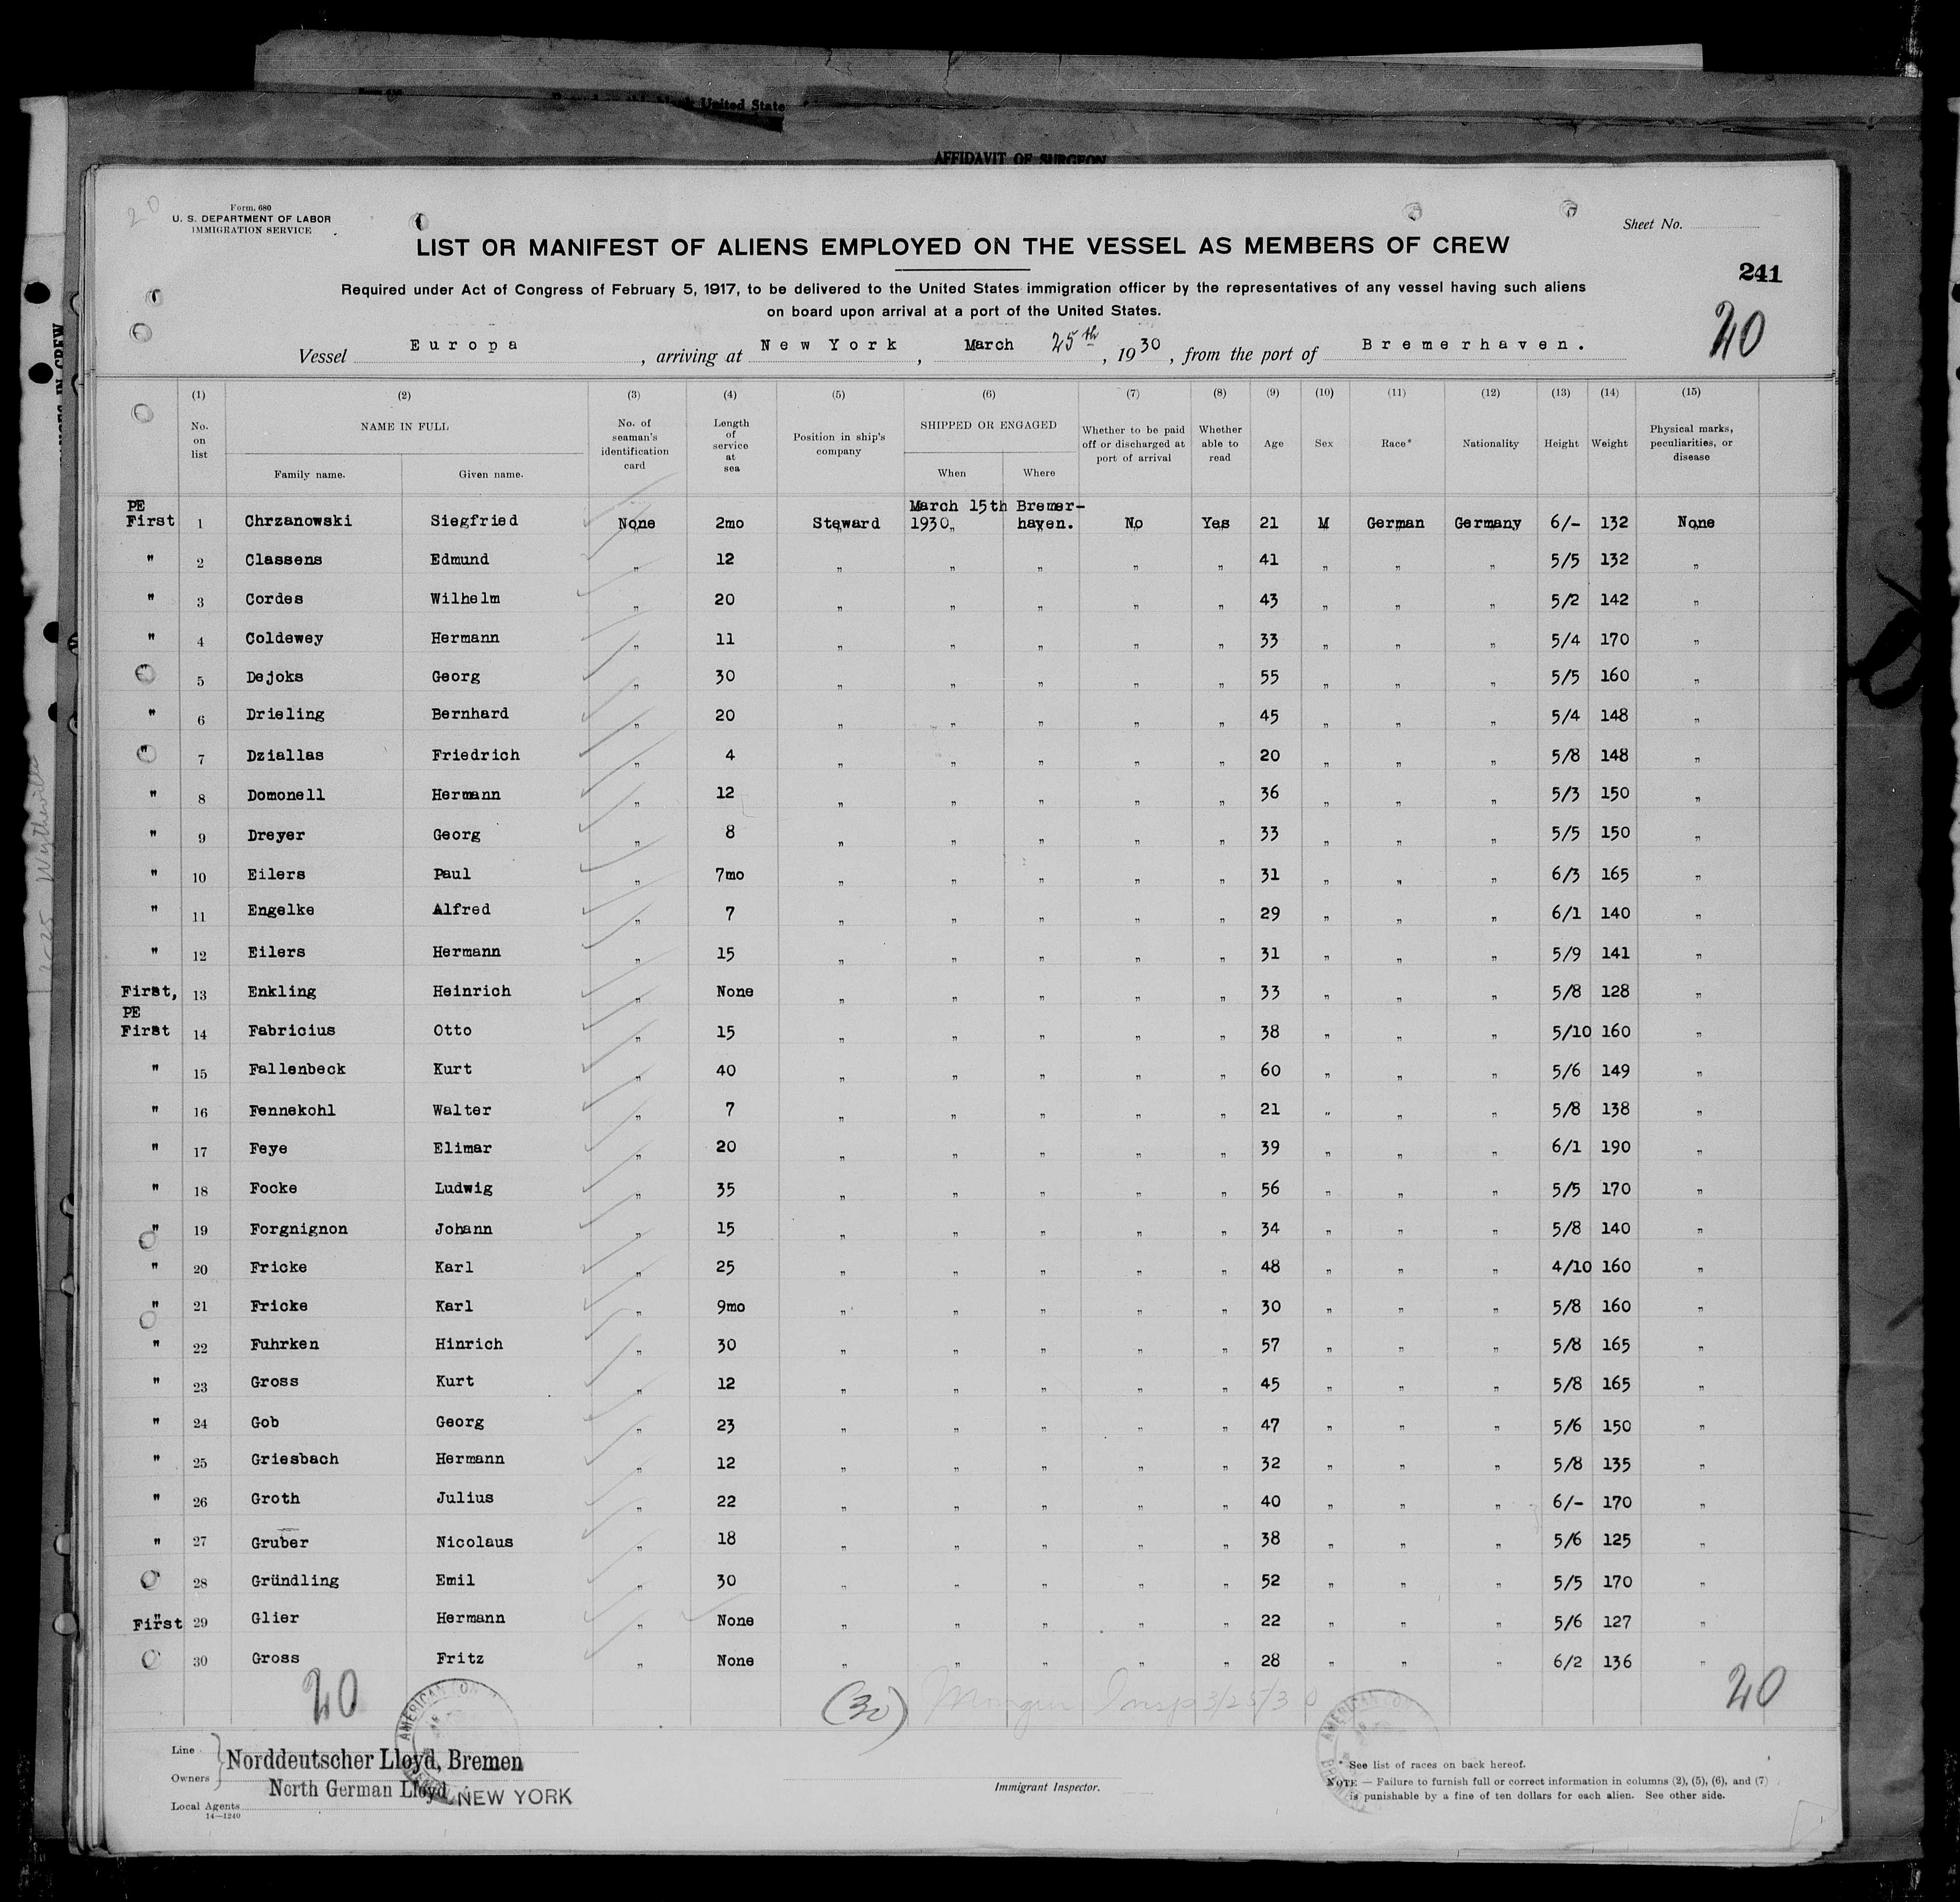 United State
AFFIDAVIT OF SURGEON
20
Form. 680
U. S. DEPARTMENT OF LABOR
IMMIGRATION SERVICE
Sheet No.
LIST OR MANIFEST OF ALIENS EMPLOYED ON THE VESSEL AS MEMBERS OF CREW
241
Required under Act of Congress of February 5, 1917, to be delivered to the United States immigration officer by the representatives of any vessel having such aliens
on board upon arrival at a port of the United States.
20
Vessel Europa, arriving at New York, March 25th, 1930, from the port of Bremerhaven.
(1) (2) (3) (4) (5) (6) (7) (8) (9) (10) (11) (12) (13) (14) (15)
No. on list NAME IN FULL Family name. Given name. No. of seaman's identification card Length of service at sea Position in ship's company SHIPPED OR ENGAGED When Where Whether to be paid off or discharged at port of arrival Whether able to read Age Sex Race* Nationality Height Weight Physical marks, peculiarities, or disease
PE First 1 Chrzanowski Siegfried None 2mo Steward March 15th 1930 Bremer-haven. No Yes 21 M German Germany 6/- 132 None
" 2 Classens Edmund " 12 " " " " " 41 " " " 5/5 132 "
" 3 Cordes Wilhelm " 20 " " " " " 43 " " " 5/2 142 "
" 4 Coldewey Hermann " 11 " " " " " 33 " " " 5/4 170 "
" 5 Dejoks Georg " 30 " " " " " 55 " " " 5/5 160 "
" 6 Drieling Bernhard " 20 " " " " " 45 " " " 5/4 148 "
" 7 Dziallas Friedrich " 4 " " " " " 20 " " " 5/8 148 "
" 8 Domonell Hermann " 12 " " " " " 36 " " " 5/3 150 "
" 9 Dreyer Georg " 8 " " " " " 33 " " " 5/5 150 "
" 10 Eilers Paul " 7mo " " " " " 31 " " " 6/3 165 "
" 11 Engelke Alfred " 7 " " " " " 29 " " " 6/1 140 "
" 12 Eilers Hermann " 15 " " " " " 31 " " " 5/9 141 "
First, 13 Enkling Heinrich " None " " " " " 33 " " " 5/8 128 "
PE First 14 Fabricius Otto " 15 " " " " " 38 " " " 5/10 160 "
" 15 Fallenbeck Kurt " 40 " " " " " 60 " " " 5/6 149 "
" 16 Fennekohl Walter " 7 " " " " " 21 " " " 5/8 138 "
" 17 Feye Elimar " 20 " " " " " 39 " " " 6/1 190 "
" 18 Focke Ludwig " 35 " " " " " 56 " " " 5/5 170 "
" 19 Forgnignon Johann " 15 " " " " " 34 " " " 5/8 140 "
" 20 Fricke Karl " 25 " " " " " 48 " " " 4/10 160 "
" 21 Fricke Karl " 9mo " " " " " 30 " " " 5/8 160 "
" 22 Fuhrken Hinrich " 30 " " " " " 57 " " " 5/8 165 "
" 23 Gross Kurt " 12 " " " " " 45 " " " 5/8 165 "
" 24 Gob Georg " 23 " " " " " 47 " " " 5/6 150 "
" 25 Griesbach Hermann " 12 " " " " " 32 " " " 5/8 135 "
" 26 Groth Julius " 22 " " " " " 40 " " " 6/- 170 "
" 27 Gruber Nicolaus " 18 " " " " " 38 " " " 5/6 125 "
28 Gründling Emil " 30 " " " " " 52 " " " 5/5 170 "
First 29 Glier Hermann " None " " " " " 22 " " " 5/6 127 "
30 Gross Fritz " None " " " " " 28 " " " 6/2 136 "
20 (30) Insp 3/25/30 20
AMERICAN CON
AMERICAN CON
Line
Owners
Norddeutscher Lloyd, Bremen
North German Lloyd NEW YORK
Local Agents
14—1240
Immigrant Inspector.
* See list of races on back hereof.
NOTE — Failure to furnish full or correct information in columns (2), (5), (6), and (7)
is punishable by a fine of ten dollars for each alien. See other side.